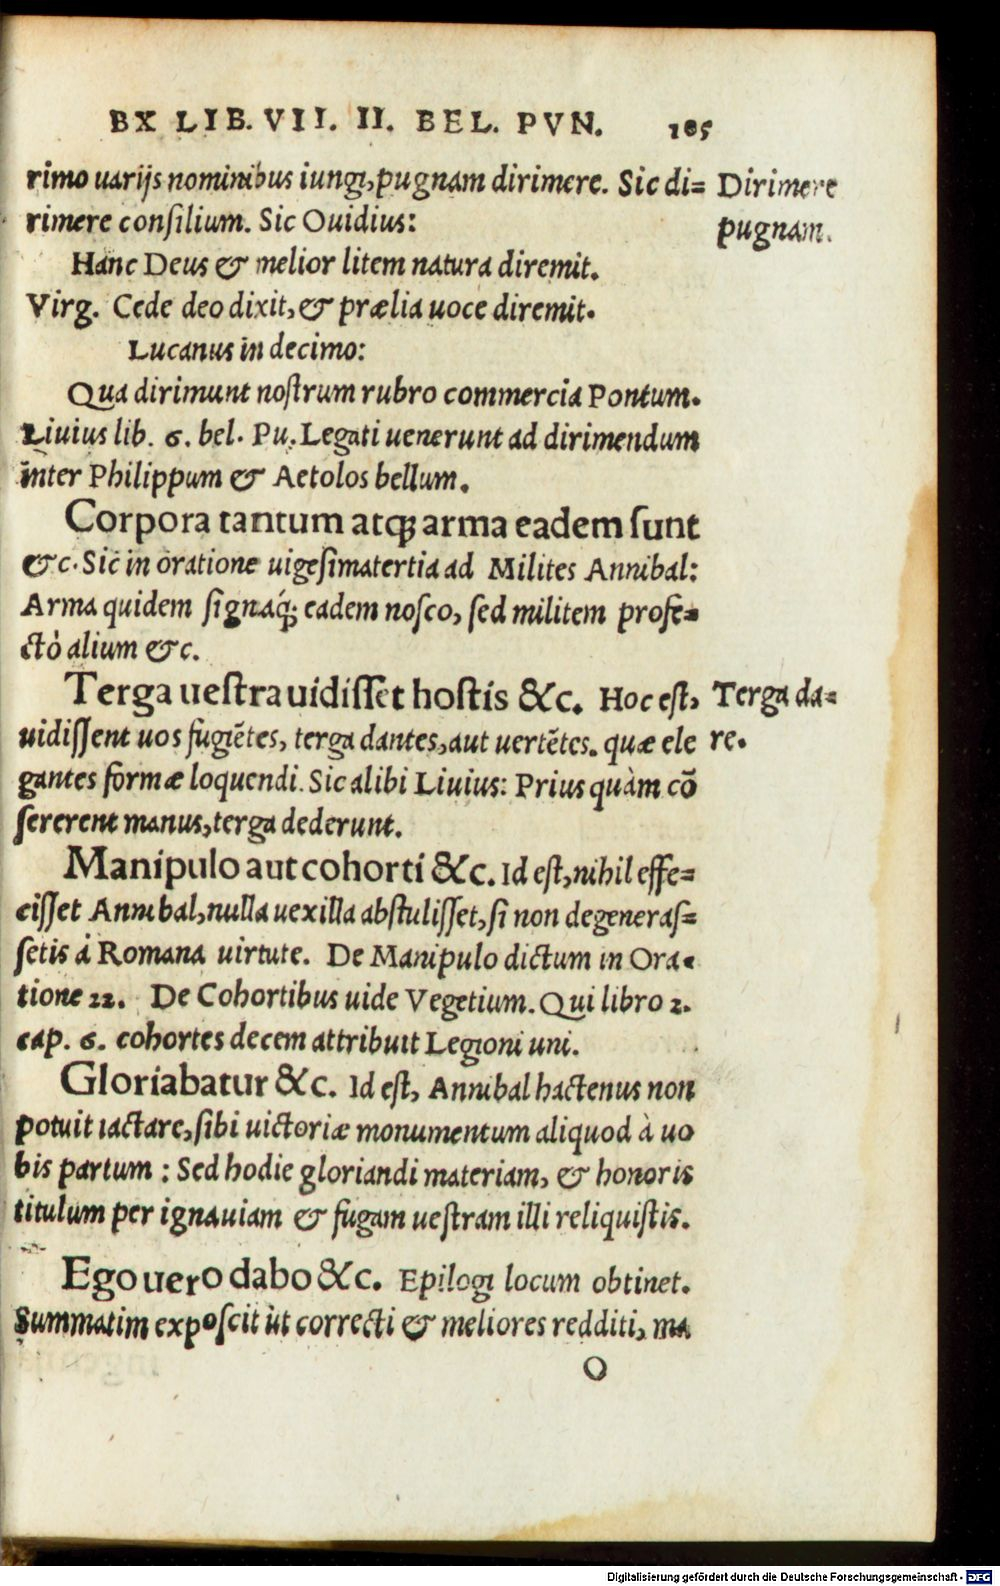 BX LIB. VII. II. BEL. PVN. 185
rimo uarijs nominibus iungi, pugnam dirimere. Sic di= Dirimere
rimere consilium. Sic Ouidius: pugnam.
Hanc Deus & melior litem natura diremit.
Virg. Cede deo dixit, & prælia uoce diremit.
Lucanus in decimo:
Qua dirimunt nostrum rubro commercia Pontum.
Liuius lib. 6. bel. Pu. Legati uenerunt ad dirimendum
inter Philippum & Aetolos bellum.
Corpora tantum atq; arma eadem sunt
&c. Sic in oratione uigesimatertia ad Milites Annibal:
Arma quidem signaq́; eadem nosco, sed militem profe=
ctò alium &c.
Terga uestra uidisset hostis &c. Hoc est, Terga da=
uidissent uos fugiẽtes, terga dantes, aut uertẽtes. quæ ele re.
gantes formæ loquendi. Sic alibi Liuius: Prius quàm cõ
sererent manus, terga dederunt.
Manipulo aut cohorti &c. Id est, nihil effe=
cisset Annibal, nulla uexilla abstulisset, si non degeneras=
setis à Romana uirtute. De Manipulo dictum in Ora=
tione 22. De Cohortibus uide Vegetium. Qui libro 2.
cap. 6. cohortes decem attribuit Legioni uni.
Gloriabatur &c. Id est, Annibal hactenus non
potuit iactare, sibi uictoriæ monumentum aliquod à uo
bis partum : Sed hodie gloriandi materiam, & honoris
titulum per ignauiam & fugam uestram illi reliquistis.
Ego uero dabo &c. Epilogi locum obtinet.
Summatim exposcit ùt correcti & meliores redditi, ma
O
Digitalisierung gefördert durch die Deutsche Forschungsgemeinschaft - DFG